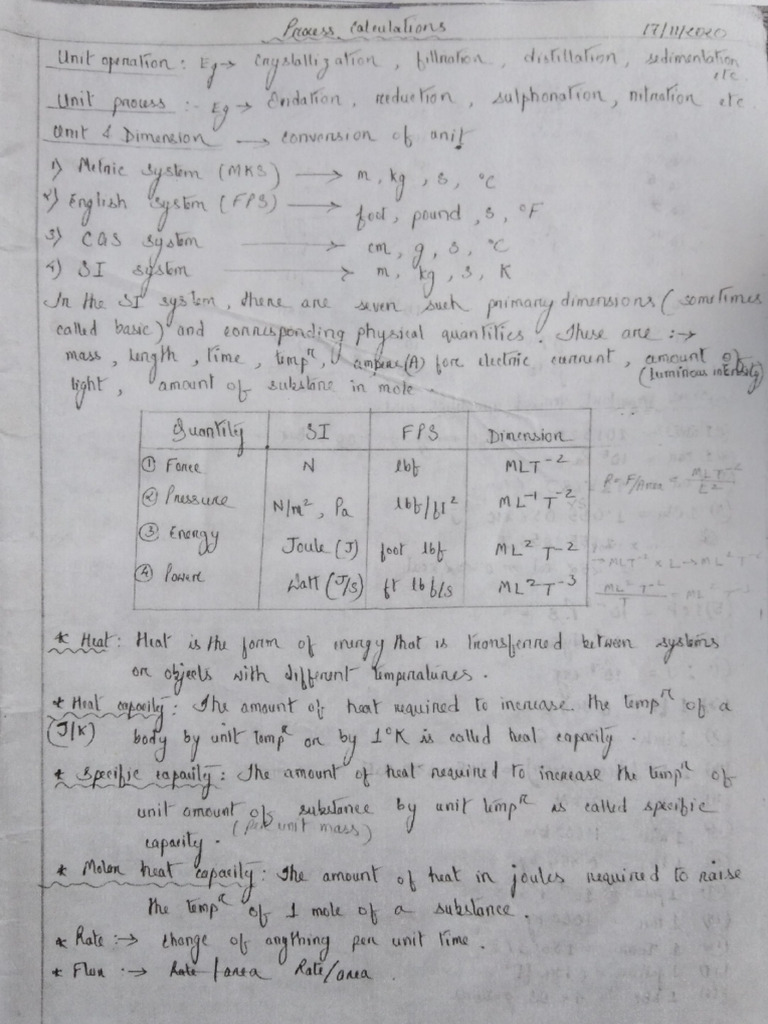 Process Calculations 17/11/2020
Unit operation : Eg → Crystallization , filtration , distillation , sedimentation etc
Unit process :- Eg → Oxidation, reduction , sulphonation, nitration etc.
Unit & Dimension → conversion of unit
1) Metric system (MKS) → m, kg , s, °C
2) English system (FPS) → foot, pound , s , °F
3) CGS system → cm, g, s, °C
4) SI system → m, kg, s, K
In the SI system, there are seven such primary dimensions ( sometimes
called basic) and corresponding physical quantities . These are :→
mass , length , time , tempʳ, ampere(A) fore electric current , amount of
light , amount of substane in mole . (luminous intensity)
Quantity SI FPS Dimension
① Force N lbf MLT⁻²
② Pressure N/m² , Pa lbf/ft² ML⁻¹T⁻² P = F/Area = MLT⁻²/L²
③ Energy Joule (J) foot lbf ML²T⁻² → MLT⁻² × L → ML²T⁻²
④ Power Watt (J/s) ft lbf/s ML²T⁻³
* Heat : Heat is the form of energy that is transferred between systems
or objects with different temperatures .
* Heat capacity : The amount of heat required to increase the tempʳ of a
(J/K) body by unit tempʳ or by 1°K is called heat capacity .
* Specific capacity : The amount of heat required to increase the tempʳ of
unit amount of substance by unit tempʳ is called specific
(per unit mass)
capacity .
* Molar heat capacity : The amount of heat in joules required to raise
the tempʳ of 1 mole of a substance .
* Rate :→ change of anything per unit time .
* Flux :→ Rate / area Rate/area .